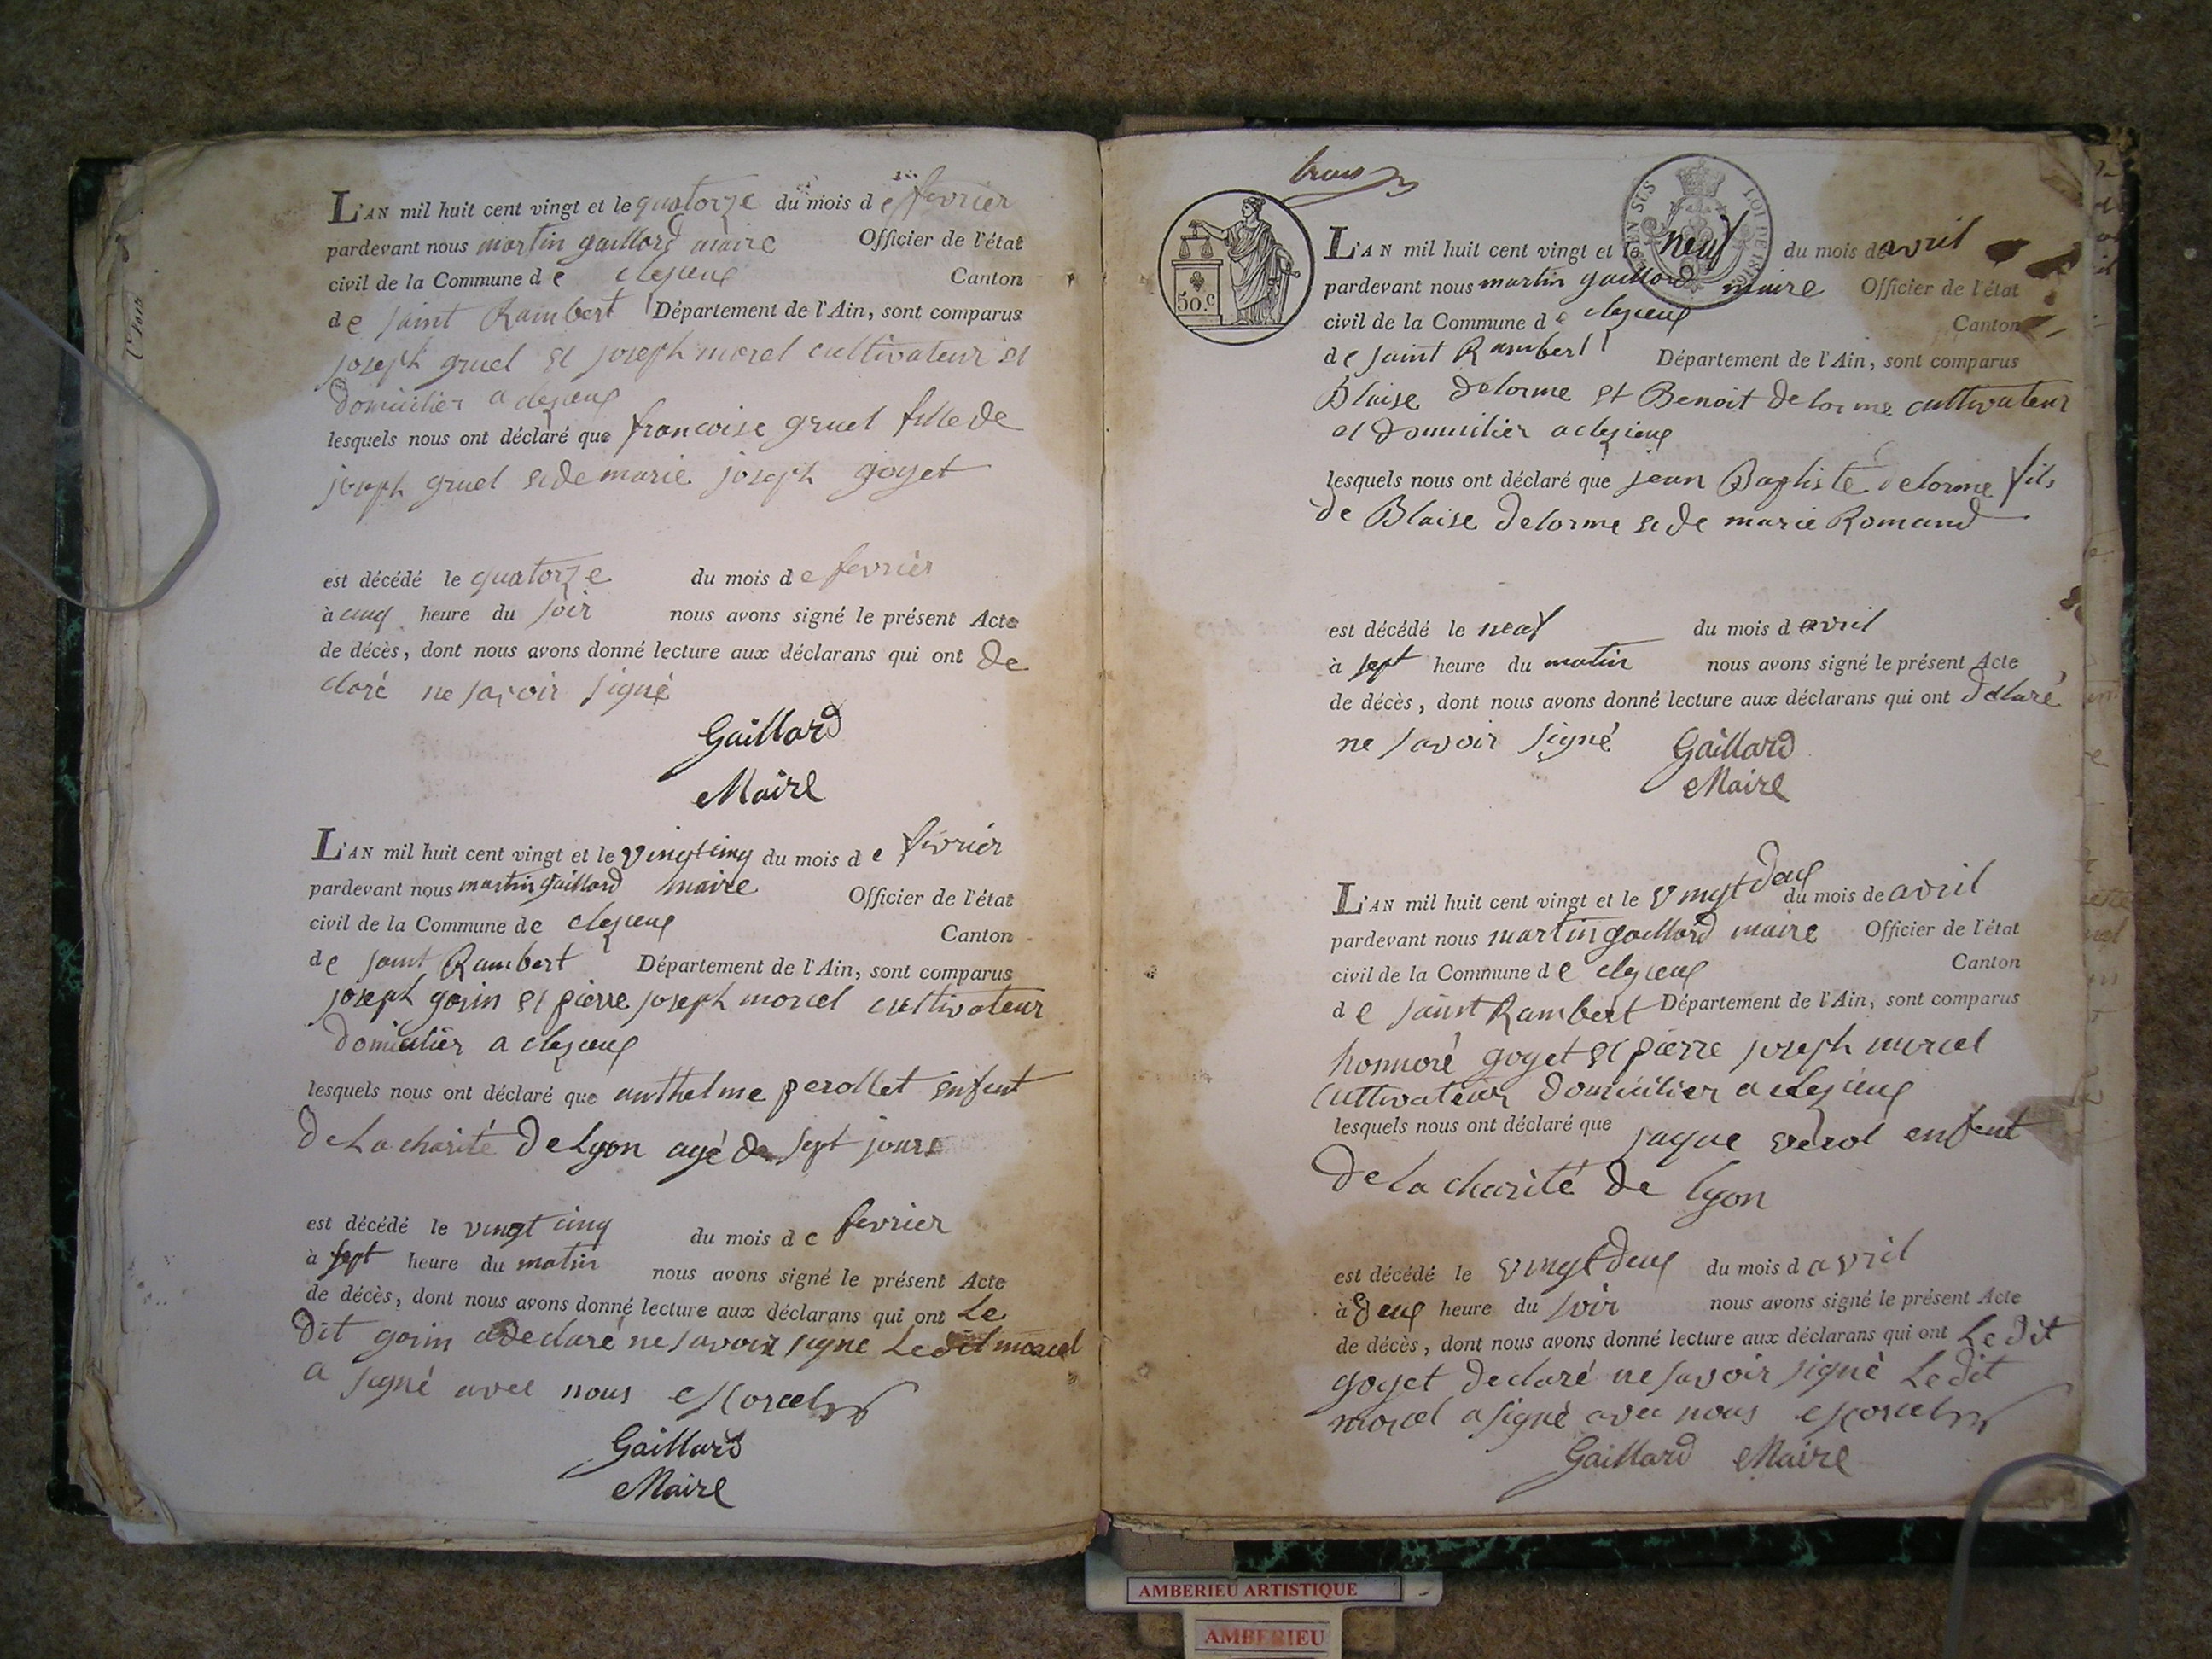 L'AN mil huit cent vingt et le quatorze du mois de fevrier
pardevant nous martin gaillard maire Officier de l'état
civil de la Commune de clezieux Canton
de saint Rambert Département de l'Ain, sont comparus
joseph gruel et joseph morel cultivateur et
domicilier a clezieux
lesquels nous ont déclaré que francoise gruel fille de
joseph gruel et de marie joseph goyet
est décédé le quatorze du mois de fevrier
à cinq heure du soir nous avons signé le présent Acte
de décès, dont nous avons donné lecture aux déclarans qui ont de
claré ne savoir signé
Gaillard
Maire
L'AN mil huit cent vingt et le vingt cinq du mois de fevrier
pardevant nous martin gaillard maire Officier de l'état
civil de la Commune de clezieux Canton
de saint Rambert Département de l'Ain, sont comparus
joseph gorin et pierre joseph morcel cultivateur
domicilier a clezieux
lesquels nous ont déclaré que anthelme perollet enfent
De La charité De Lyon agé de sept jours
est décédé le vingt cinq du mois de fevrier
à sept heure du matin nous avons signé le présent Acte
de décès, dont nous avons donné lecture aux déclarans qui ont Le
dit gorin a declaré ne savoir signe Le dit morcel
a signé avec nous Morcel
Gaillard
Maire
L'AN mil huit cent vingt et le neuf du mois de avril
pardevant nous martin gaillard maire Officier de l'état
civil de la Commune de clezieux Canton
de saint Rambert Département de l'Ain, sont comparus
Blaise delorme et Benoit delorme cultivateur
et domicilier a clezieux
lesquels nous ont déclaré que jean Baptiste delorme fils
de Blaise delorme et de marie Romand
est décédé le neuf du mois d avril
à sept heure du matin nous avons signé le présent Acte
de décès, dont nous avons donné lecture aux déclarans qui ont déclaré
ne savoir signé Gaillard
Maire
L'AN mil huit cent vingt et le vingt deux du mois de avril
pardevant nous martin gaillard maire Officier de l'état
civil de la Commune de clezieux Canton
de saint Rambert Département de l'Ain, sont comparus
honnoré goyet et pierre joseph morcel
cultivateur domicilier a clezieux
lesquels nous ont déclaré que jaque enfent
De La charité de lyon
est décédé le vingt deux du mois d avril
à deux heure du soir nous avons signé le présent Acte
de décès, dont nous avons donné lecture aux déclarans qui ont Le dit
goyet declaré ne savoir signé Le dit
morcel a signé avec nous Morcel
Gaillard Maire
50 c
LOI DE 1816
AMBERIEU ARTISTIQUE
AMBERIEU